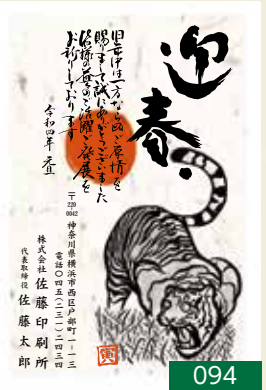 迎春
旧年中は一方ならぬご厚情を
賜りまして誠にありがとうございました
皆様の益々のご活躍ご発展を
お祈りしております
令和四年 元旦
〒220-0042
神奈川県横浜市西区戸部町一-一三
電話〇四五(二三一)二四三四
株式会社 佐藤印刷所
代表取締役 佐藤太郎
寅
094